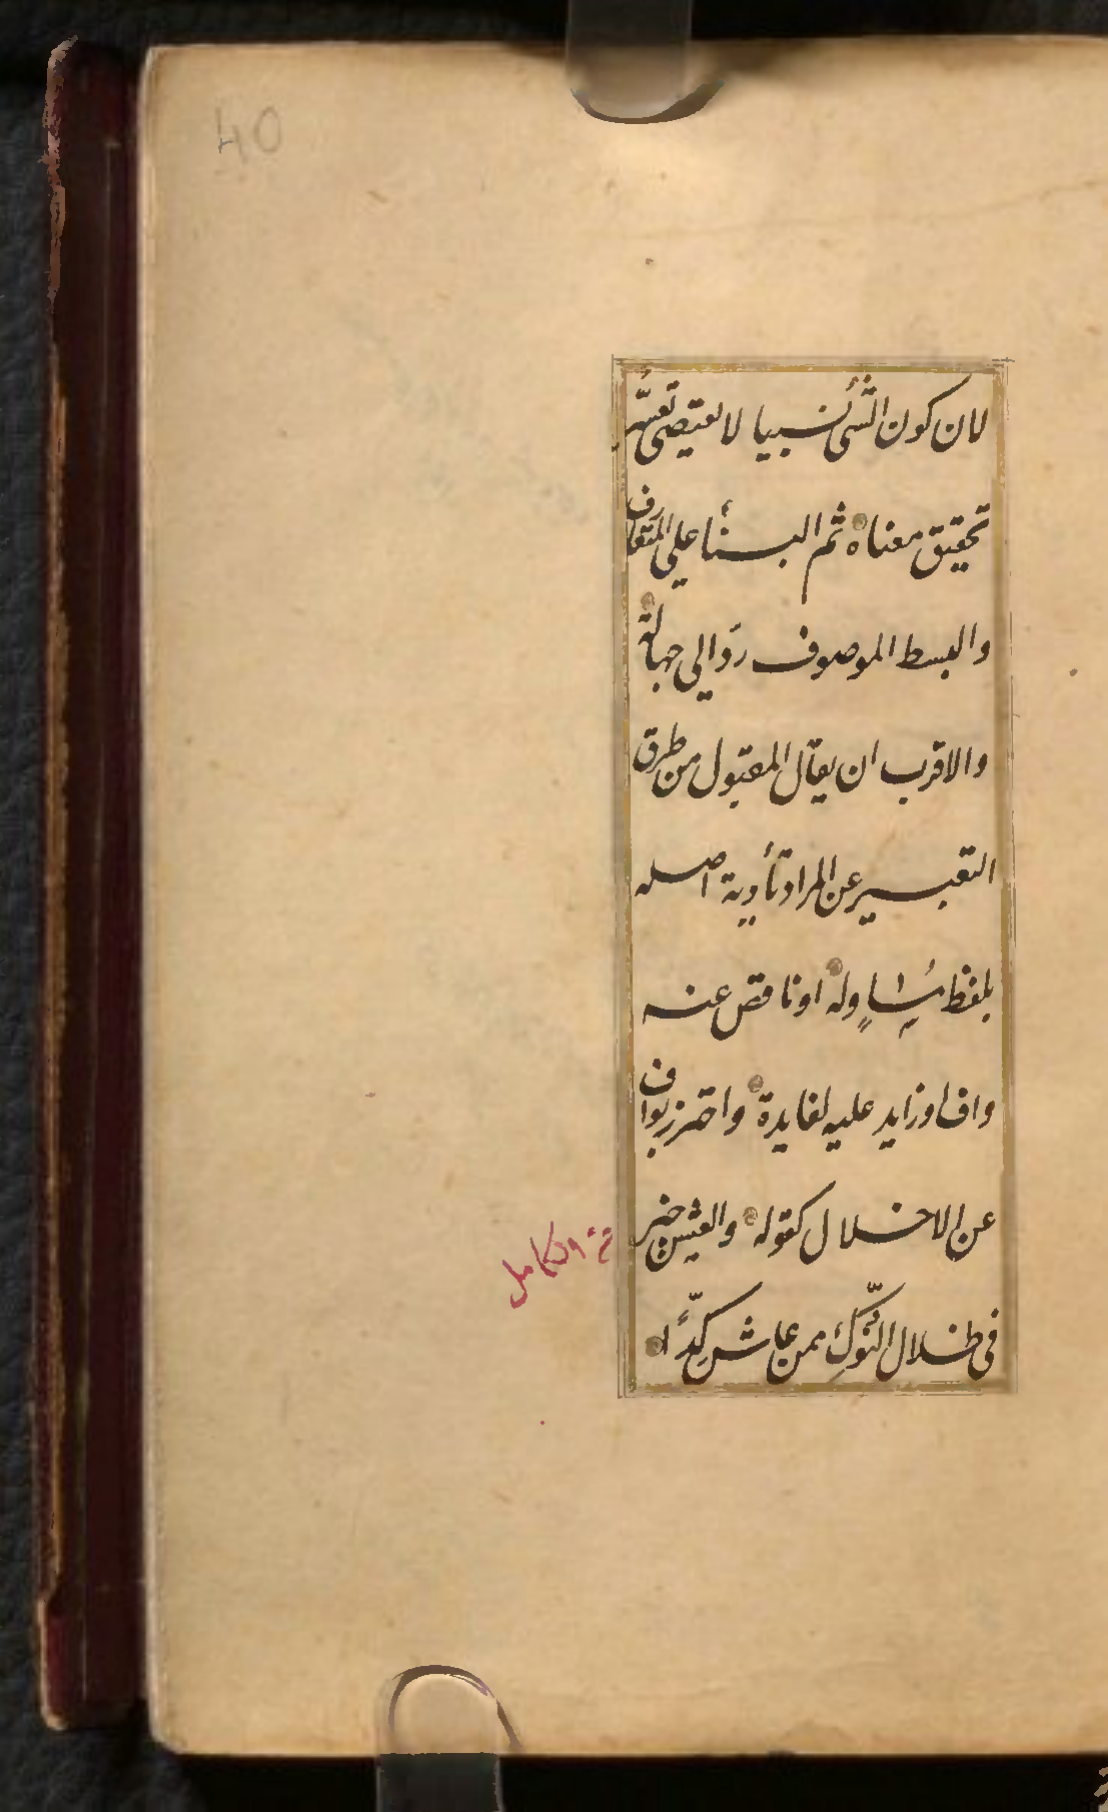 40
لان كون الشئ نسبيا لا يقتضى تعسّر
تحقيق معناه ثم البناء على المتعارف
والبسط الموصوف ردّ الى جهالة
والاقرب ان يقال المقبول من طرق
التعبير عن المراد تأدية اصله
بلفظ مساوٍ له او ناقص عنه
واف او زايد عليه لفايدة واحترز بواف
عن الاخلال كقوله والعيش خير
فى ظلال النّوك ممن عاش كدًّا
الكامل